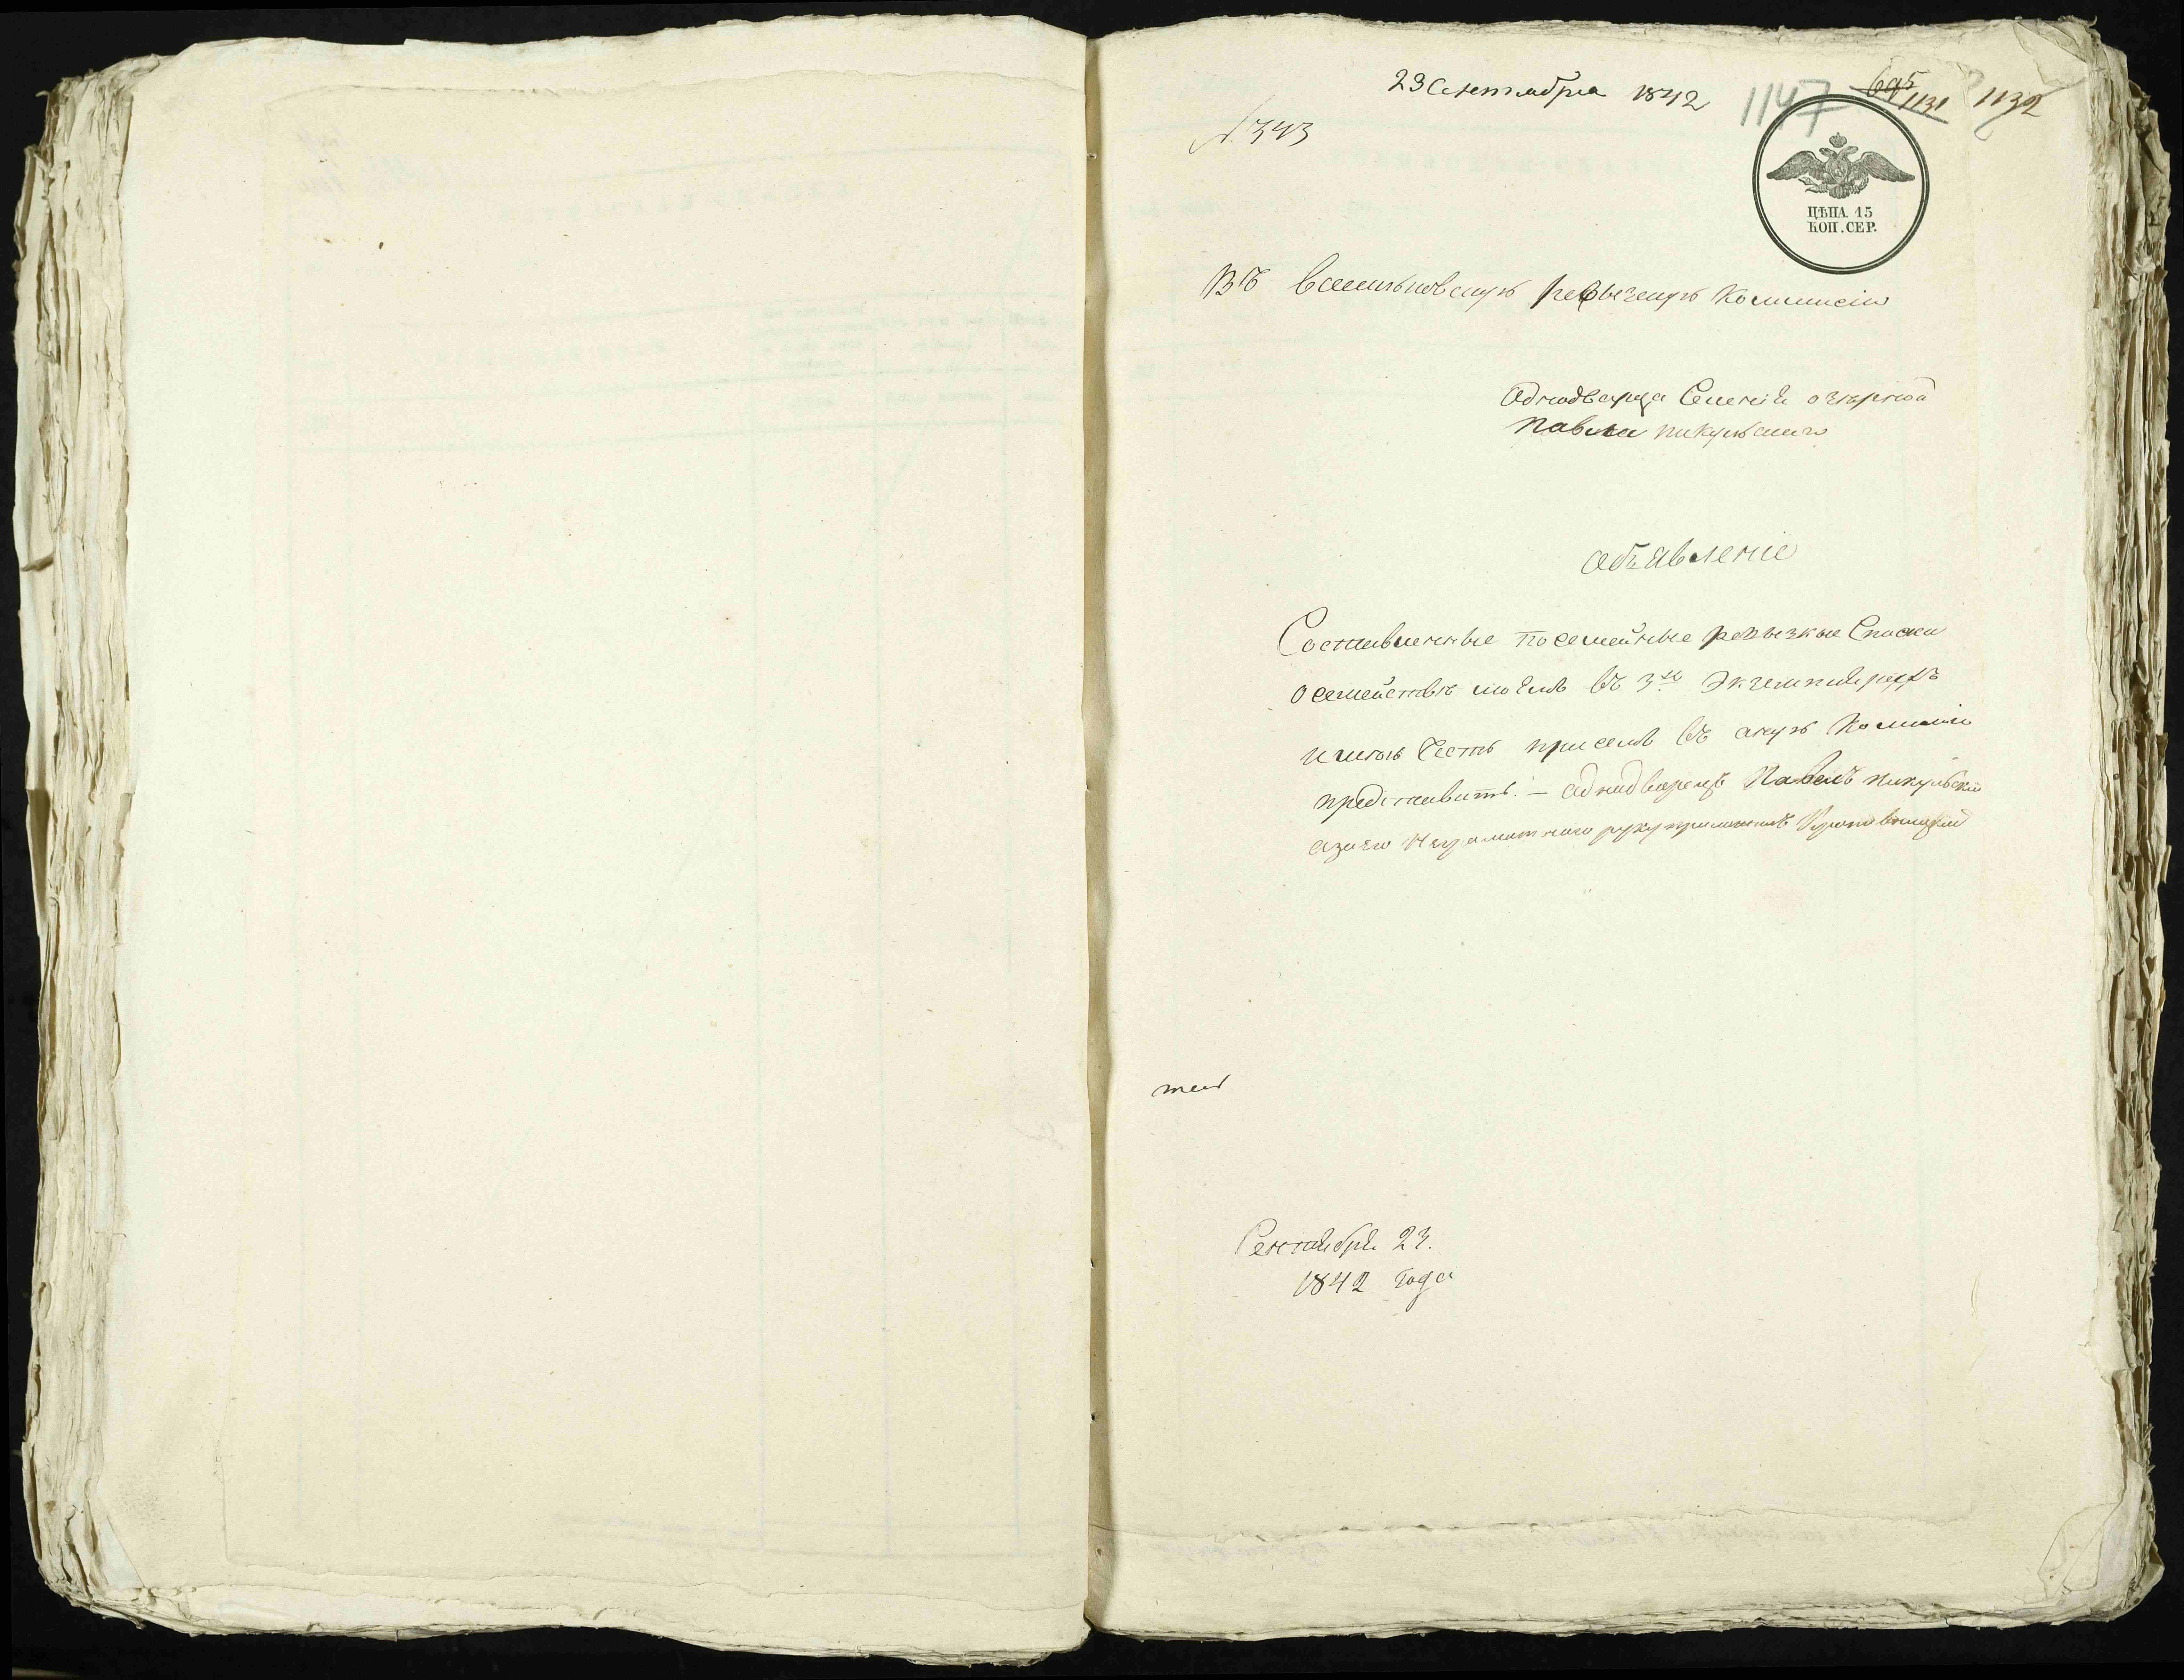 23 Сентября 1842 1147 695 1131 1132
№ 343
ЦѢНА 15
КОП. СЕР.
Въ Васильковскую ревызскую Коммисію
Аднодварца Селенія озерной
Павла пикульского
Объявленіе
Составленные посемейные ревызкие Списки
о семействѣ моемъ въ 3хъ Экземплярахъ
имѣю Честь присемъ въ оную Комисію
представить. — аднодварецъ Павелъ пикульски
азаего Неграмотного руку приложилъ
Сентября 23.
1842 года